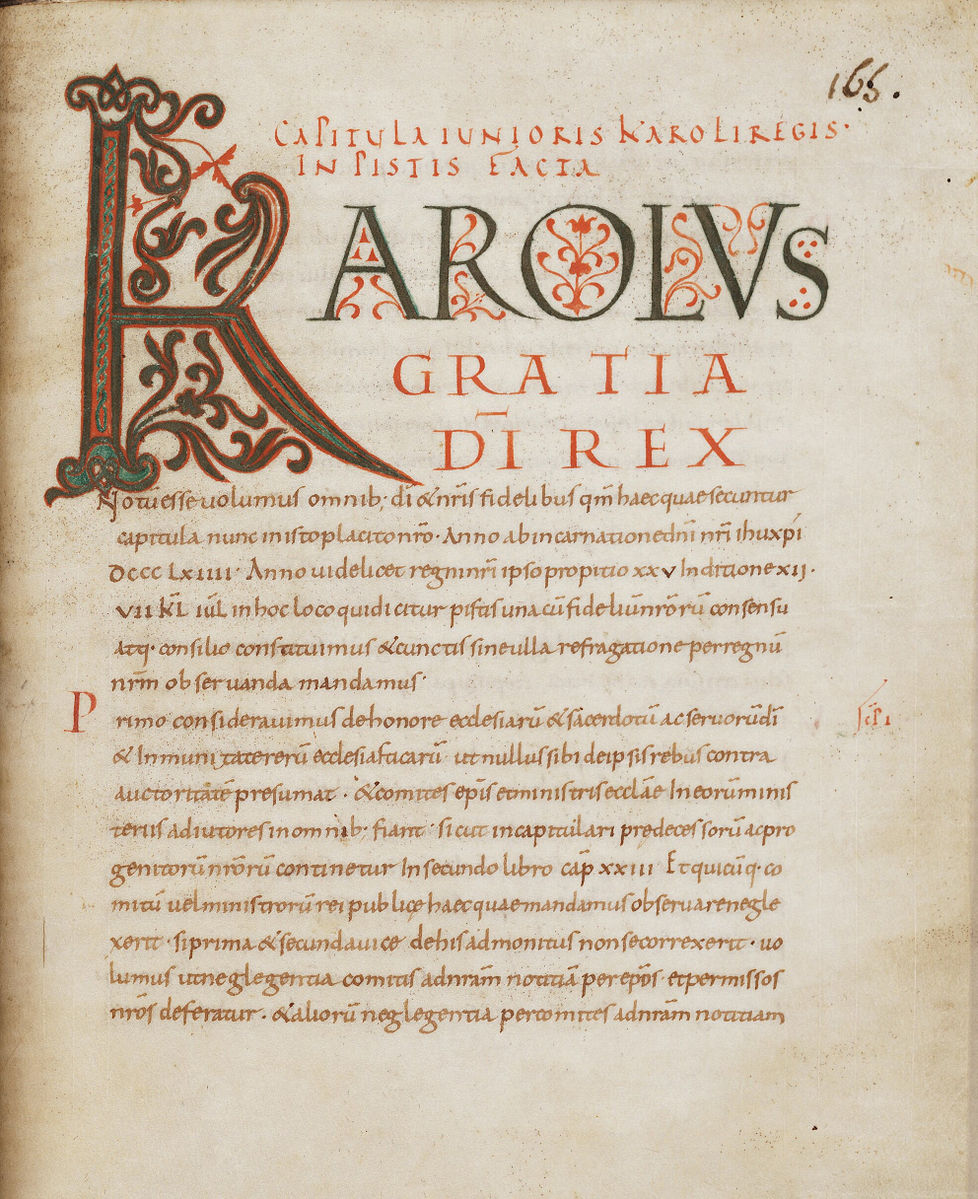 165.
CAPITULA IUNIORIS KAROLI REGIS·
IN PISTIS FACTA
KAROLVS
GRATIA
DI REX
Notū esse volumus omnib; dī & nr̄is fidelibus qm̄ haec quae secuntur
capitula nunc in isto placito nr̄o· Anno ab incarnatione dn̄i nr̄i ihu xp̄i
DCCC LXIIII· Anno videlicet regni nr̄i ipso propitio xxv Inditione XII·
VII KL̄ iūL in hoc loco qui dicitur pistis una cū fideliū nr̄orū consensu
atq· consilio constituimus & cunctis sine ulla refragatione per regnū
nr̄m observanda mandamus·
Primo consideravimus de honore ecclesiarū & sacerdotū ac servorū dī
& Inmunitate rerū ecclesiasticarū ut nullus sibi de ipsis rebus contra
auctoritatē presumat· & comites ep̄is et ministris ecclāe In eorū minis
teriis adiutores in omnib· fiant· sicut in capitulari predecessorū ac pro
genitorū nr̄orū continetur In secundo libro cap̄ xxiii Et quicūq· co
mitū vel ministrorū rei publicę haec quae mandamus observare negle
xerit· si prima & secunda vice de his admonitus non se correxerit· vo
lumus ut neglegentia comitis ad nr̄am notitiā per ep̄os et per missos
nr̄os deferatur· & aliorū neglegentia per comites ad nr̄am notitiam